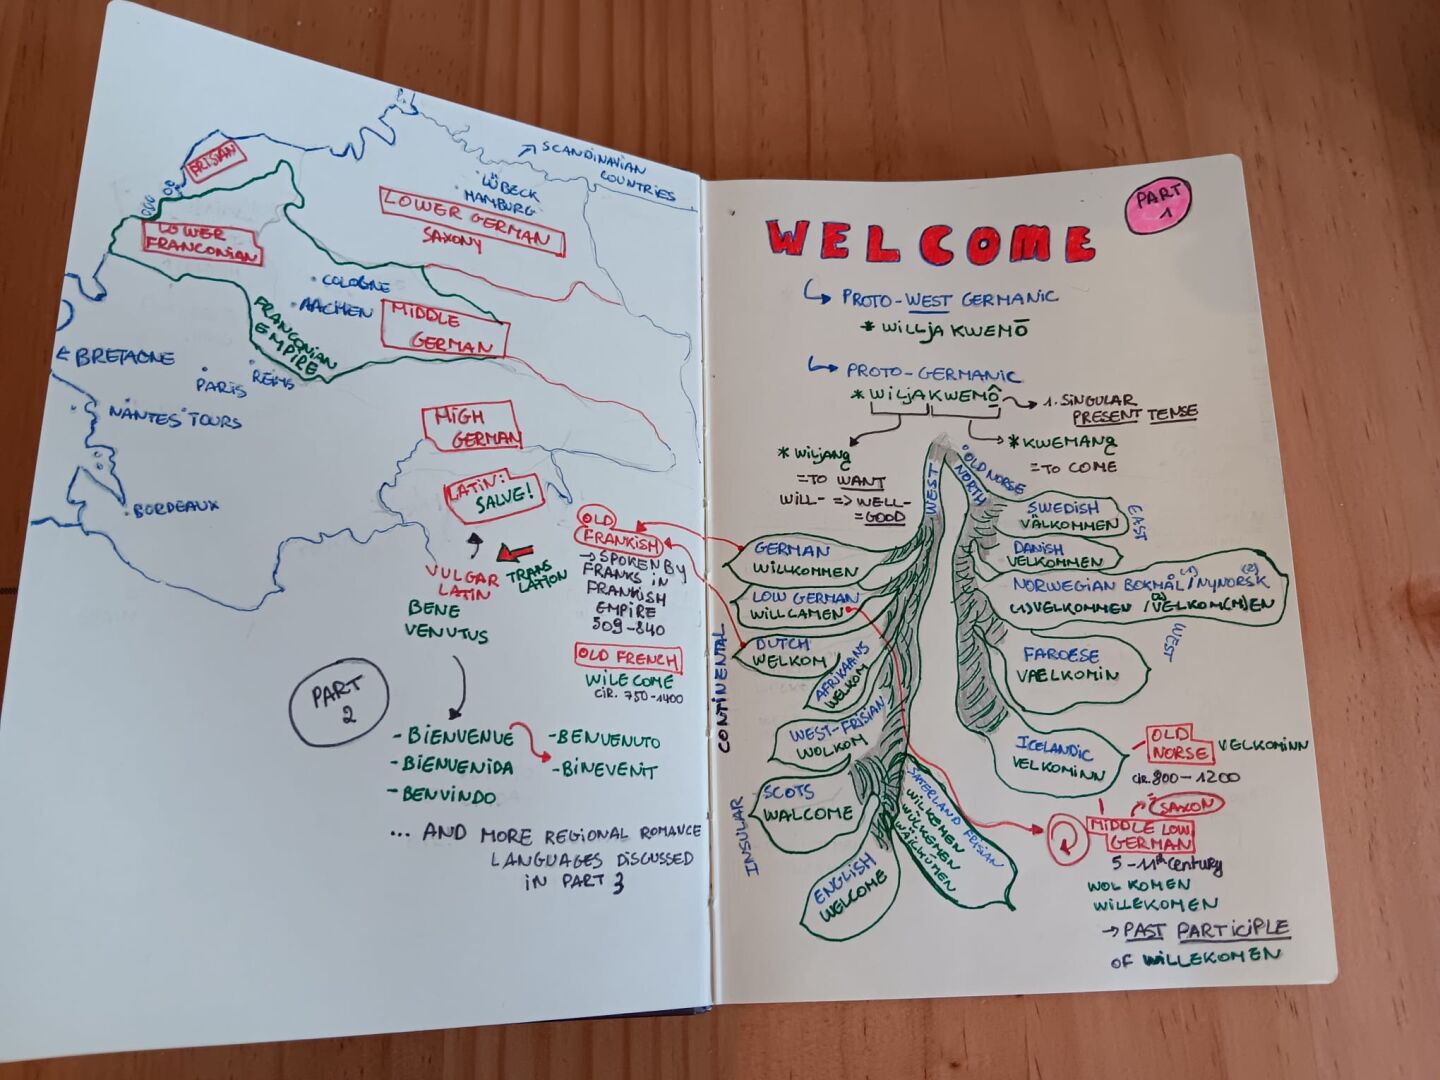 SCANDINAVIAN
COUNTRIES
FRISIAN
LÜBECK
HAMBURG
LOWER GERMAN
SAXONY
LOWER
FRANCONIAN
COLOGNE
AACHEN
MIDDLE
GERMAN
FRANCONIAN
EMPIRE
BRETAGNE
PARIS
REIMS
NANTES TOURS
BORDEAUX
HIGH
GERMAN
LATIN:
SALVE!
VULGAR
LATIN
TRANS
LATION
BENE
VENUTUS
OLD
FRANKISH
→ SPOKEN BY
FRANKS IN
FRANKISH
EMPIRE
509-840
OLD FRENCH
WILECOME
CIR. 750-1400
PART
2
- BIENVENUE
- BIENVENIDA
- BENVINDO
- BENVENUTO
- BINEVENIT
... AND MORE REGIONAL ROMANCE
LANGUAGES DISCUSSED
IN PART 3
PART
1
WELCOME
PROTO-WEST GERMANIC
* WILLJA KWEMŌ
PROTO-GERMANIC
* WILJAKWEMÔ
1. SINGULAR
PRESENT TENSE
* WILJANĄ
= TO WANT
WILL- => WELL-
= GOOD
* KWEMANĄ
= TO COME
WEST
NORTH
OLD NORSE
EAST
WEST
CONTINENTAL
INSULAR
GERMAN
WILLKOMMEN
LOW GERMAN
WILLCAMEN
DUTCH
WELKOM
AFRIKAANS
WELKOM
WEST-FRISIAN
WOLKOM
SCOTS
WALCOME
ENGLISH
WELCOME
SATERLAND FRISIAN
WILKEMEN
WÜLKEMEN
WÄILKUMEN
SWEDISH
VÄLKOMMEN
DANISH
VELKOMMEN
NORWEGIAN BOKMÅL (1) / NYNORSK (2)
(1) VELKOMMEN / (2) VELKOM(M)EN
FAROESE
VÆLKOMIN
ICELANDIC
VELKOMINN
OLD
NORSE
VELKOMINN
CIR. 800-1200
SAXON
MIDDLE LOW
GERMAN
5-11th century
WOLKOMEN
WILLEKOMEN
→ PAST PARTICIPLE
OF WILLEKOMEN